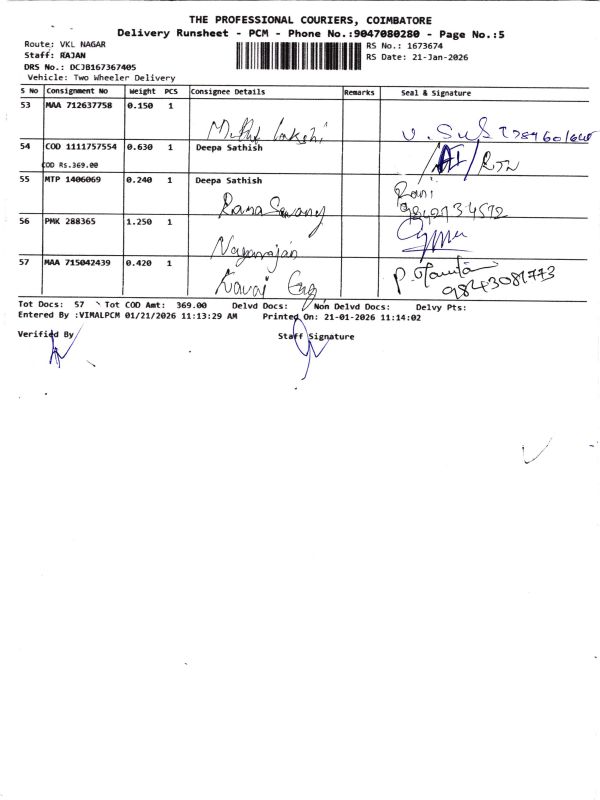 THE PROFESSIONAL COURIERS, COIMBATORE
Delivery Runsheet - PCM - Phone No.:9047080280 - Page No.:5
Route: VKL NAGAR
Staff: RAJAN
DRS No.: DCJB167367405
Vehicle: Two Wheeler Delivery
RS No.: 1673674
RS Date: 21-Jan-2026
S No Consignment No Weight PCS Consignee Details Remarks Seal & Signature
53 MAA 712637758 0.150 1
54 COD 1111757554 0.630 1 Deepa Sathish
COD Rs.369.00
RTN
55 MTP 1406069 0.240 1 Deepa Sathish
Rani
56 PMK 288365 1.250 1
Nagarajan
57 MAA 715042439 0.420 1
9843081773
Tot Docs: 57 Tot COD Amt: 369.00 Delvd Docs: Non Delvd Docs: Delvy Pts:
Entered By :VIMALPCM 01/21/2026 11:13:29 AM Printed On: 21-01-2026 11:14:02
Verified By Staff Signature